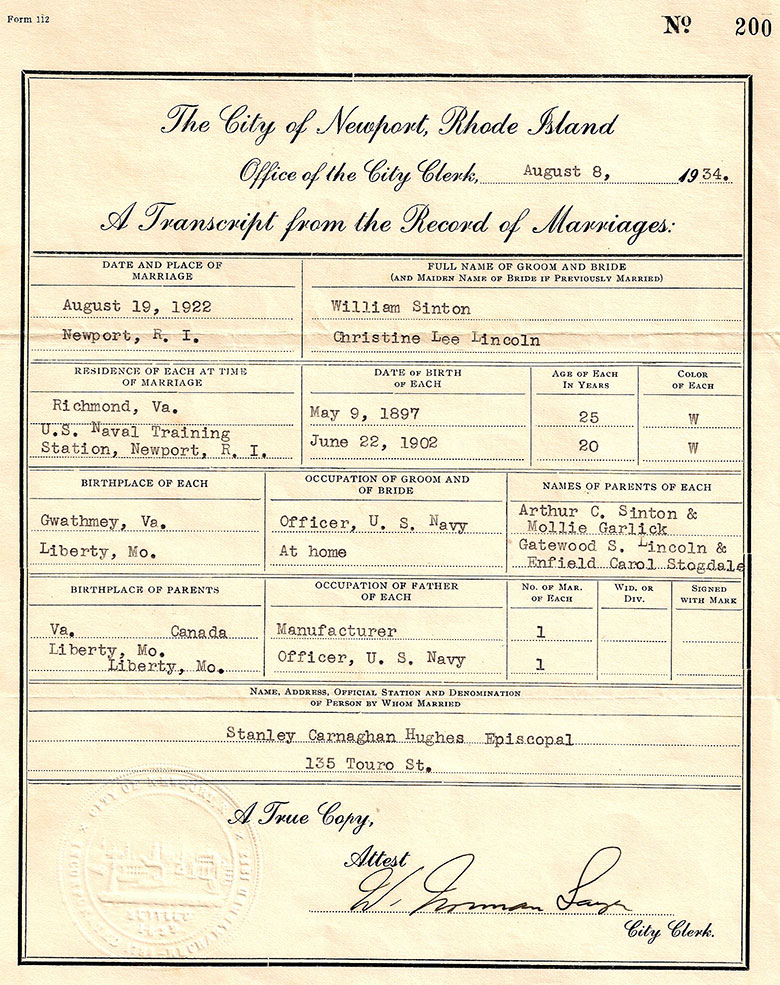 Form 112
Nº 200
The City of Newport, Rhode Island
Office of the City Clerk, August 8, 1934.
A Transcript from the Record of Marriages:
DATE AND PLACE OF MARRIAGE
August 19, 1922
Newport, R. I.
FULL NAME OF GROOM AND BRIDE
(AND MAIDEN NAME OF BRIDE IF PREVIOUSLY MARRIED)
William Sinton
Christine Lee Lincoln
RESIDENCE OF EACH AT TIME
OF MARRIAGE
Richmond, Va.
U.S. Naval Training
Station, Newport, R. I.
DATE OF BIRTH
OF EACH
May 9, 1897
June 22, 1902
AGE OF EACH
IN YEARS
25
20
COLOR
OF EACH
W
W
BIRTHPLACE OF EACH
Gwathmey, Va.
Liberty, Mo.
OCCUPATION OF GROOM AND
OF BRIDE
Officer, U. S. Navy
At home
NAMES OF PARENTS OF EACH
Arthur C. Sinton &
Mollie Garlick
Gatewood S. Lincoln &
Enfield Carol Stogdale
BIRTHPLACE OF PARENTS
Va. Canada
Liberty, Mo.
Liberty, Mo.
OCCUPATION OF FATHER
OF EACH
Manufacturer
Officer, U. S. Navy
No. OF MAR.
OF EACH
1
1
WID. OR
DIV.
SIGNED
WITH MARK
NAME, ADDRESS, OFFICIAL STATION AND DENOMINATION
OF PERSON BY WHOM MARRIED
Stanley Carnaghan Hughes Episcopal
135 Touro St.
A True Copy,
Attest
W. Norman
City Clerk.
CITY OF